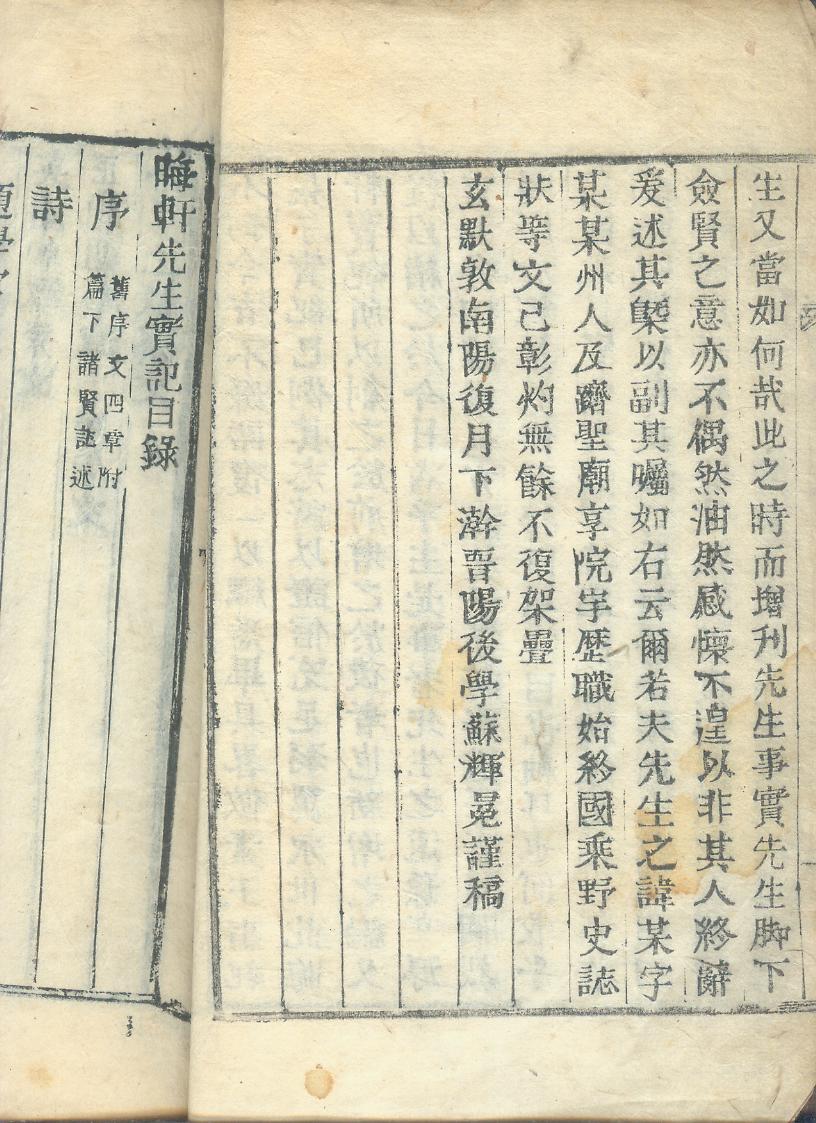 生又當如何哉此之時而增刋先生事實先生脚下
僉賢之意亦不偶然油然感懷不遑以非其人終辭
爰述其槩以副其囑如右云爾若夫先生之諱某字
某某州人及躋聖廟享院宇歷職始終國乘野史誌
狀等文已彰灼無餘不復架疊
玄默敦南陽復月下澣晉陽後學蘇輝冕謹稿
晦軒先生實記目錄
序
舊序文四章附
篇下諸賢記述
詩